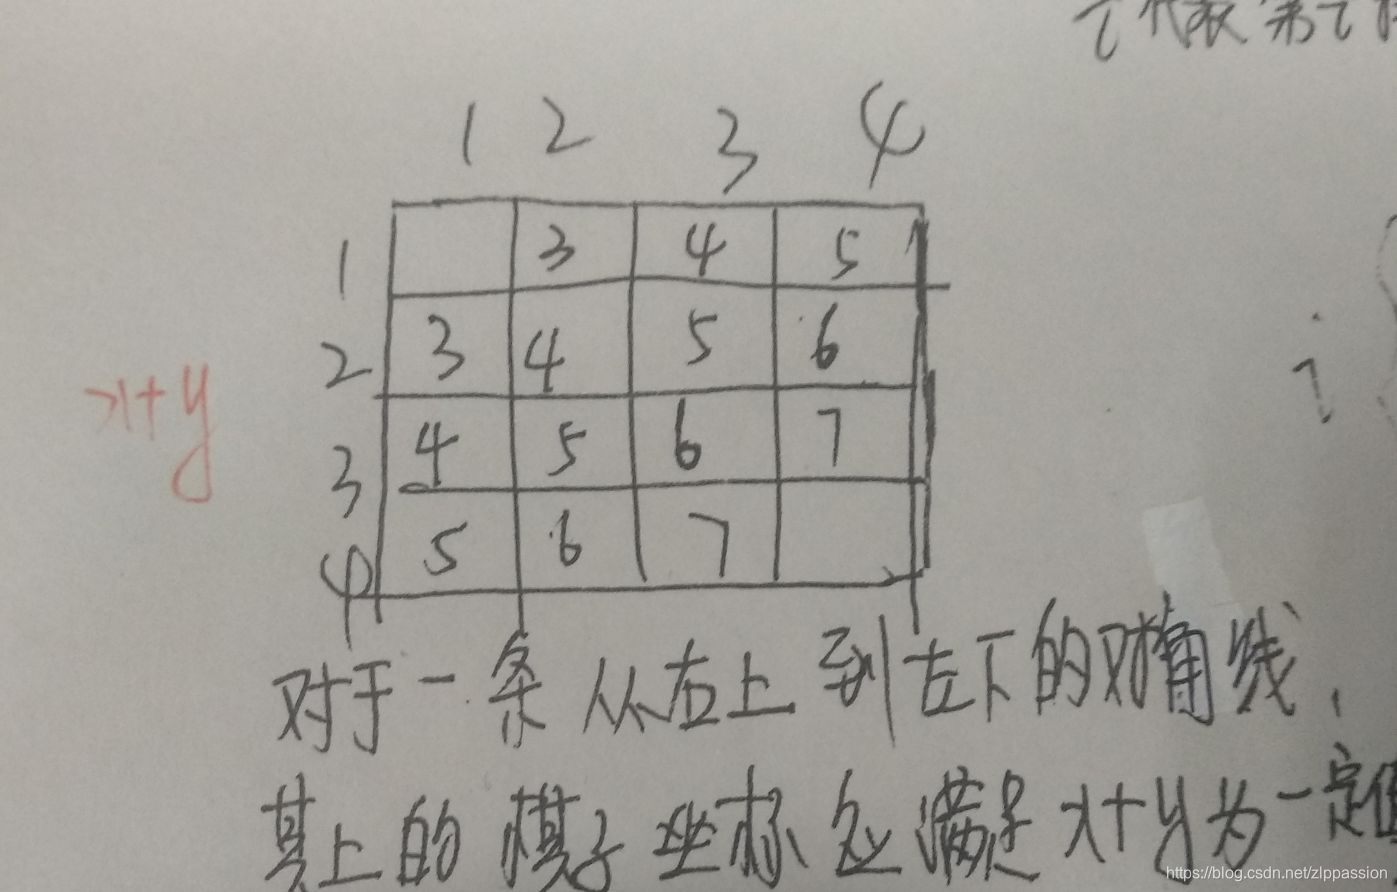 代表第
1 2 3 4
1 3 4 5
2 3 4 5 6
x+y
3 4 5 6 7
4 5 6 7
对于一条从右上到左下的对角线,
其上的棋子坐标处满足x+y为一定值
https://blog.csdn.net/zlppassion